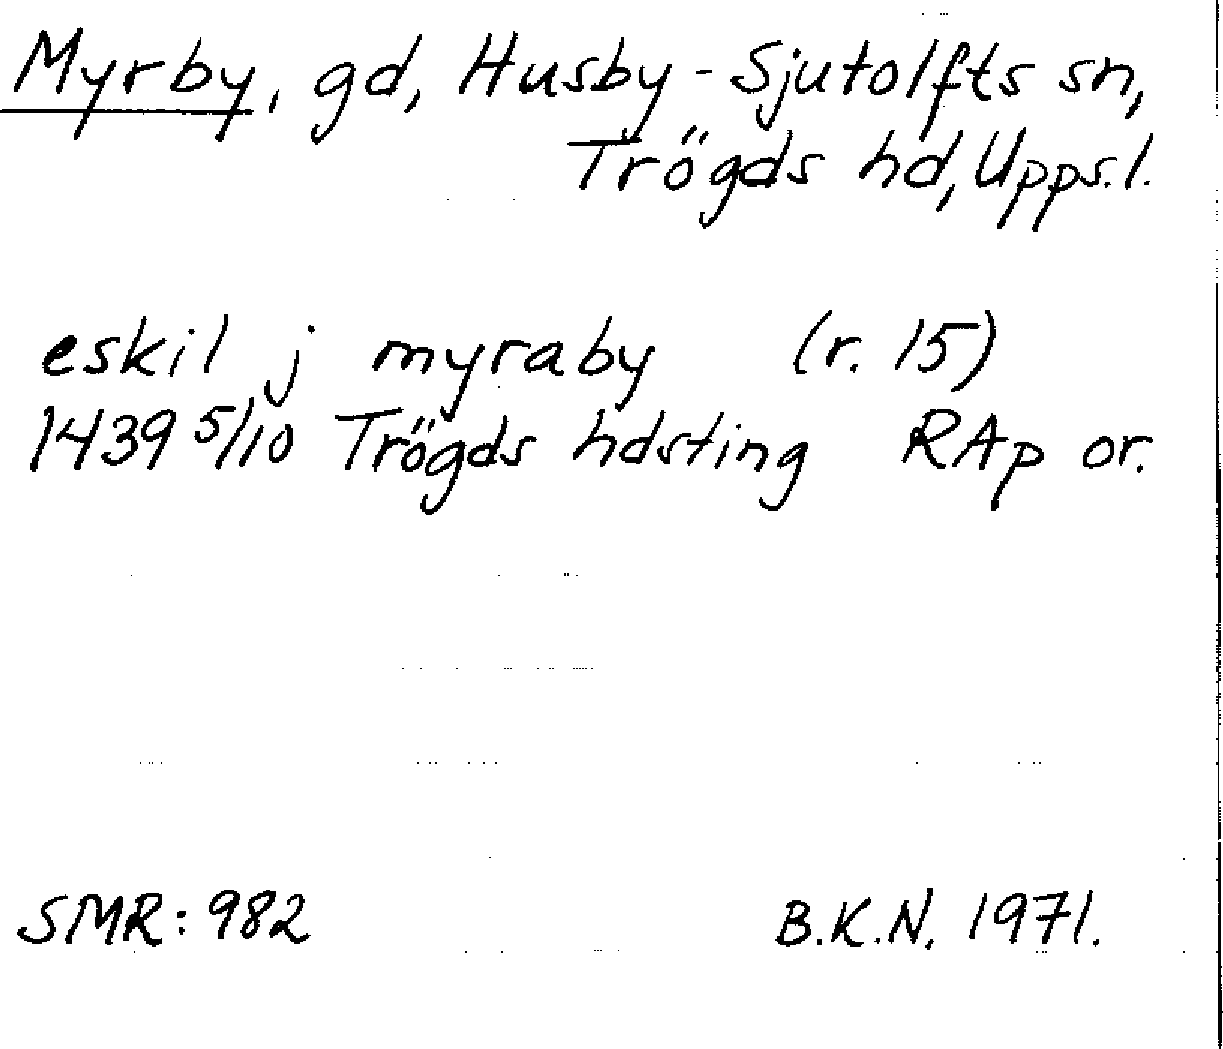 Myrby, gd, Husby-Sjutolfts sn,
Trögds hd, Upps.l.
eskil j myraby (r. 15)
1439 5/10 Trögds hdsting RAp or.
SMR: 982 B.K.N. 1971.